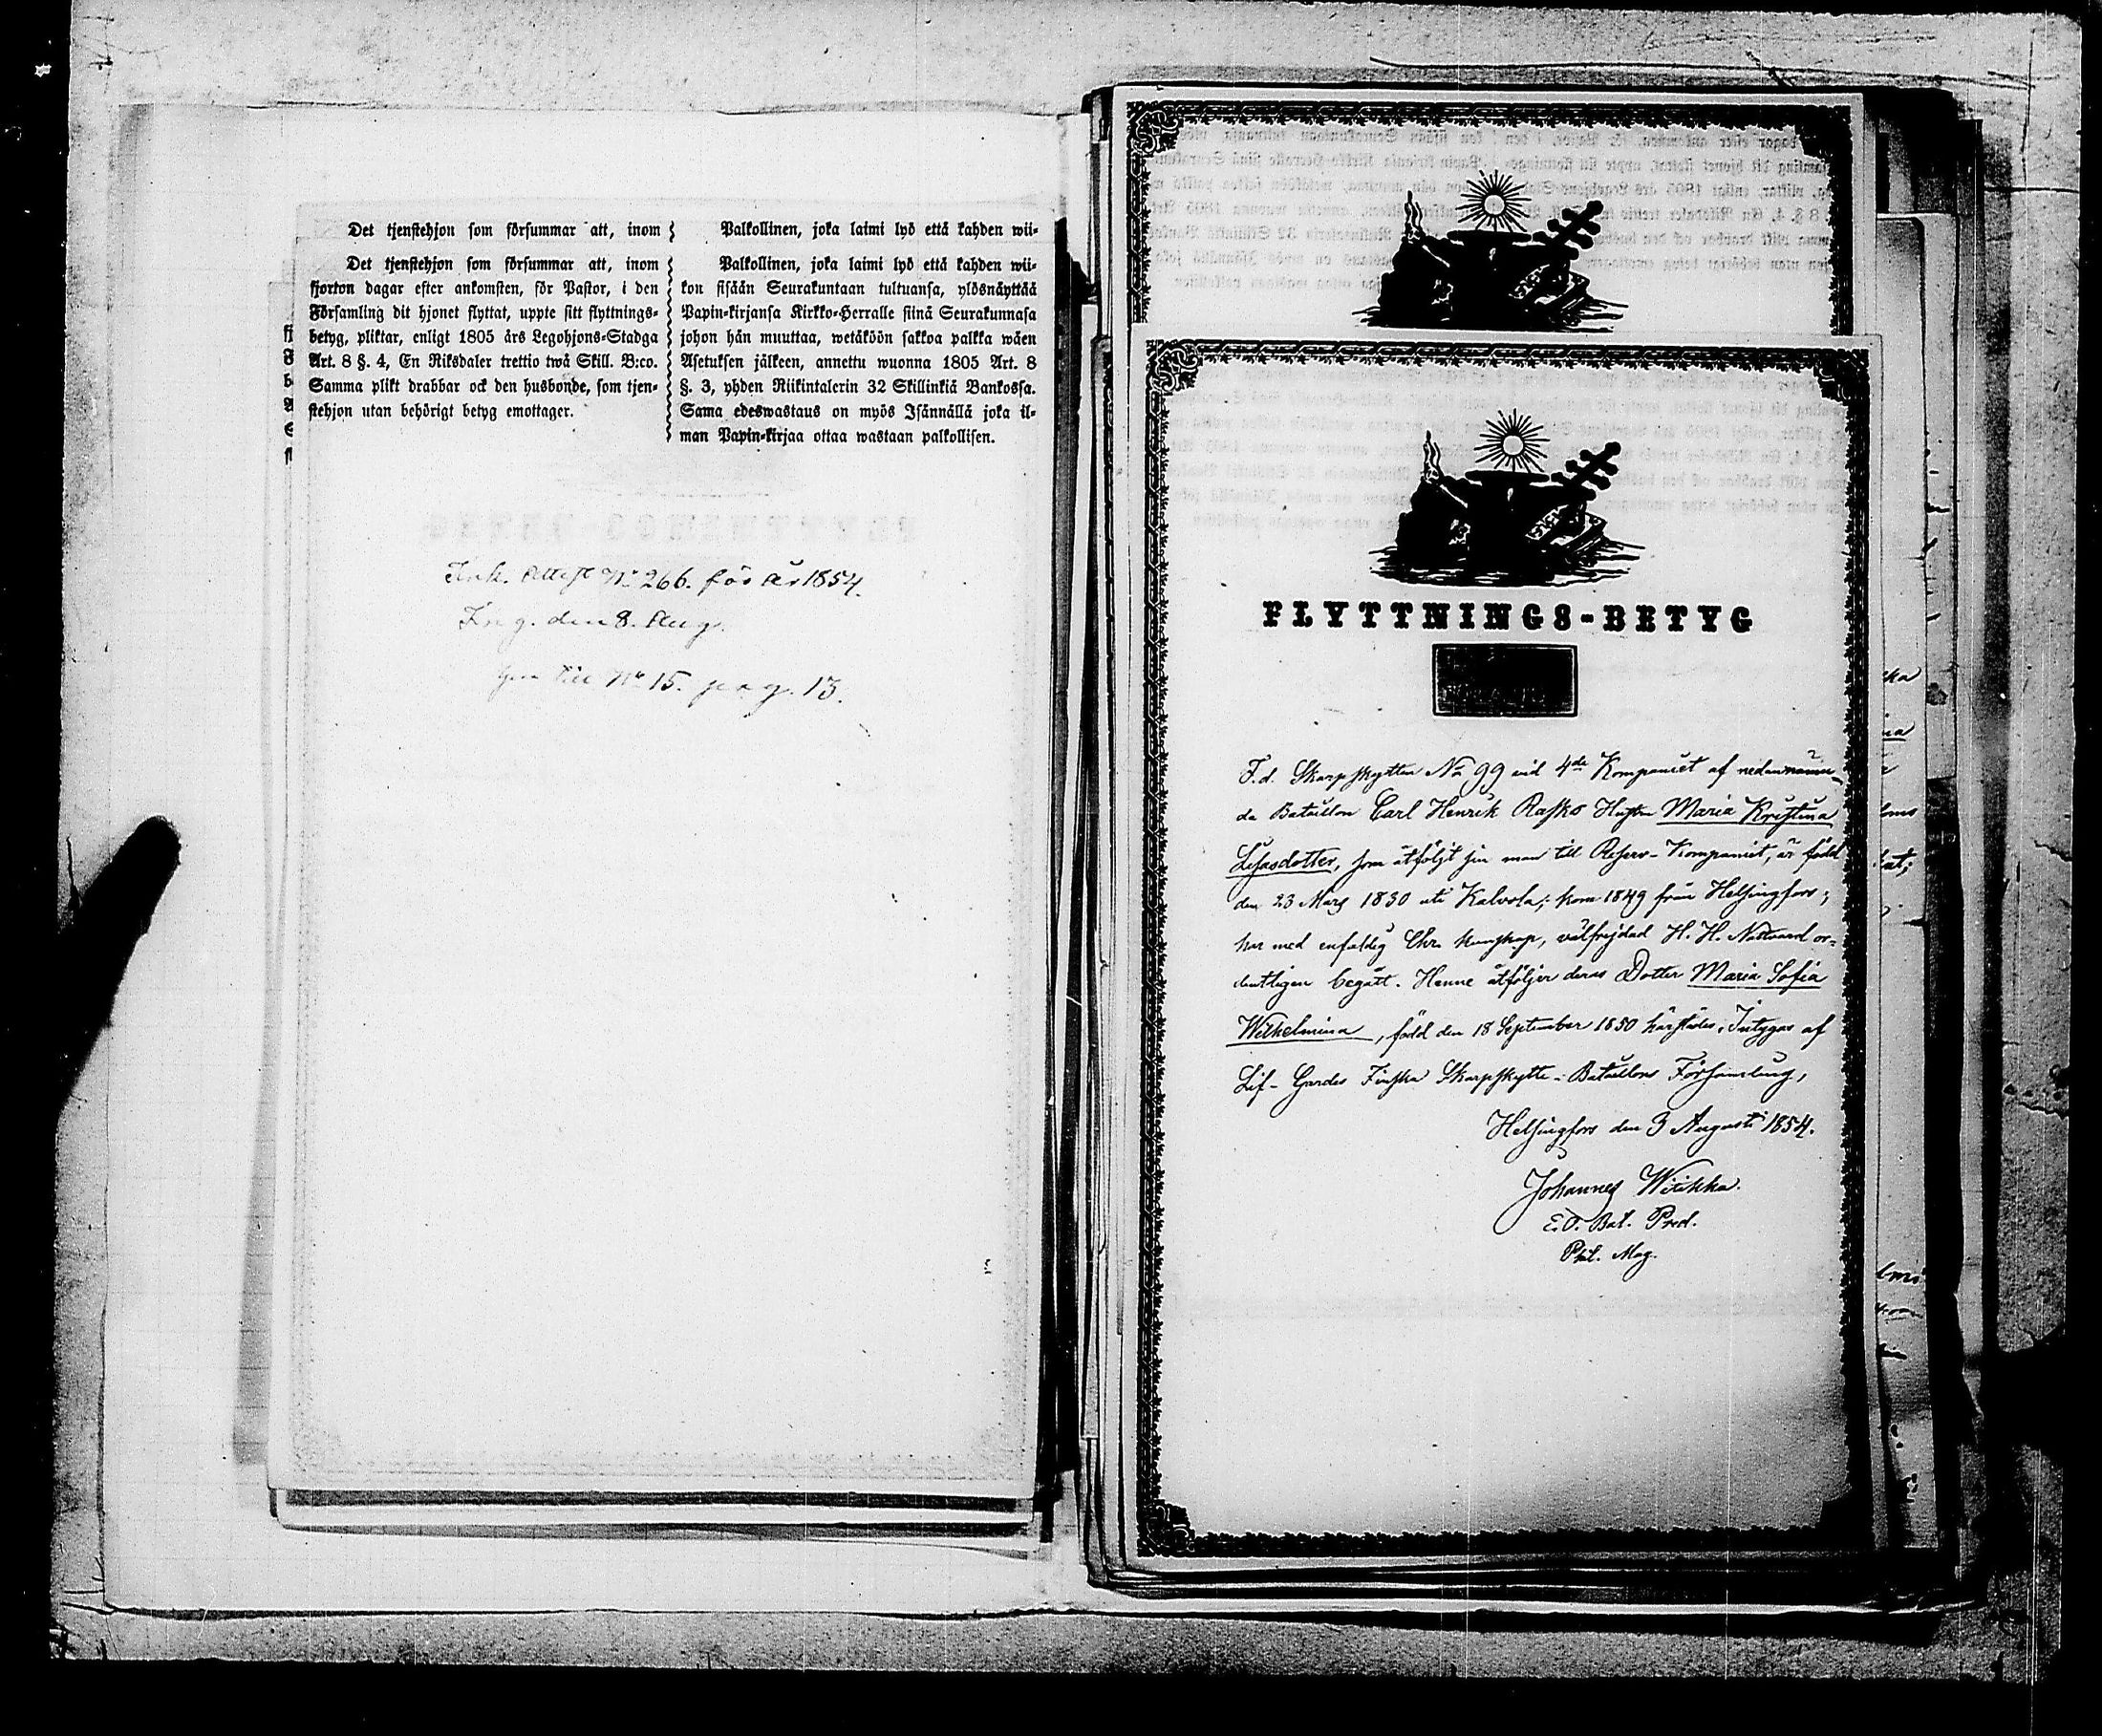 Det tjenstehjon som försummar att, inom
Det tjenstehjon som försummar att, inom
fjorton dagar efter ankomsten, för Pastor, i den
Församling dit hjonet flyttat, uppte sitt flyttnings-
betyg, pliktar, enligt 1805 års Legohjons-Stadga
Art. 8 §. 4, En Riksdaler trettio twå Skill. B:co.
Samma plikt drabbar ock den husbonde, som tjen-
stehjon utan behörigt betyg emottager.
Palkollinen, joka laimi lyö että kahden wii-
Palkollinen, joka laimi lyö että kahden wii-
kon sisään Seurakuntaan tultuansa, ylösnäyttää
Papin-kirjansa Kirkko-Herralle siinä Seurakunnasa
johon hän muuttaa, wetäköön sakkoa palkka wäen
Asetuksen jälkeen, annettu wuonna 1805 Art. 8
§. 3, yhden Riikintalerin 32 Skillinkiä Bankossa.
Sama edeswastaus on myös Isännällä joka il-
man Papin-kirjaa ottaa wastaan palkollisen.
Ink. Attest No 266. för år 1854.
Ing. den 8. Aug.
till No 15. pag. 13.
FLYTTNINGS-BETYG
F.d. Skarpskytten No 99 vid 4de Kompaniet af nedannämn-
da Bataillon Carl Henrik Rasko Hustru Maria Kristina
Lisasdotter, som åtföljt sin man till Reserv-Kompaniet, är född
den 23 Mars 1830 uti Kalvola; kom 1849 från Helsingfors;
har med enfaldig Chr. kunskap, välfrejdad H. H. Nattvard or-
dentligen begått. Henne åtföljer deras Dotter Maria Sofia
Wilhelmina, född den 18 September 1850 härstädes. Intygas af
Lif-Gardes Finska Skarpskytte-Bataillons Församling,
Helsingfors den 3 Augusti 1854.
Johannes Witikka.
E.O. Bat. Pred.
Phil. Mag.